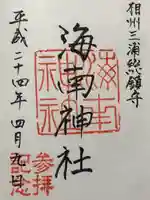 相州三浦総鎮守
海南神社
平成二十四年四月九日
参拝
記念